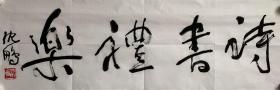 詩書禮樂
沈鵬